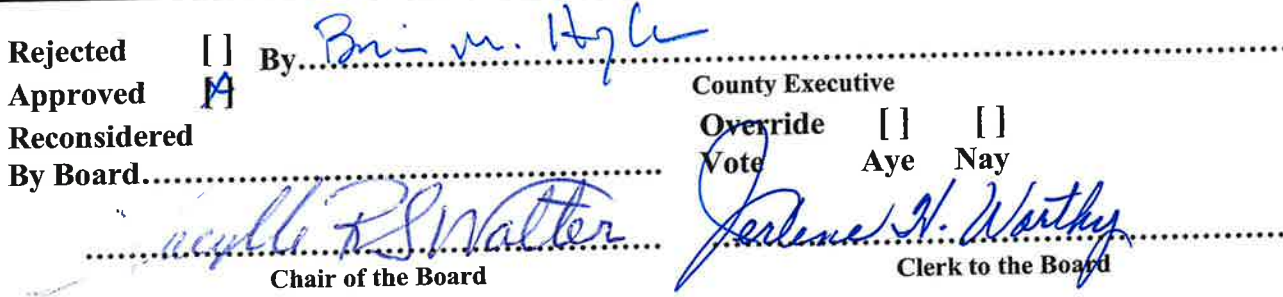 Rejected [ ] By.......... Brian M. Hughes
County Executive
Approved [X]
Reconsidered
By Board..........
Override [ ] [ ]
Vote Aye Nay
R S Walter
Chair of the Board
Jerlene H. Worthy
Clerk to the Board